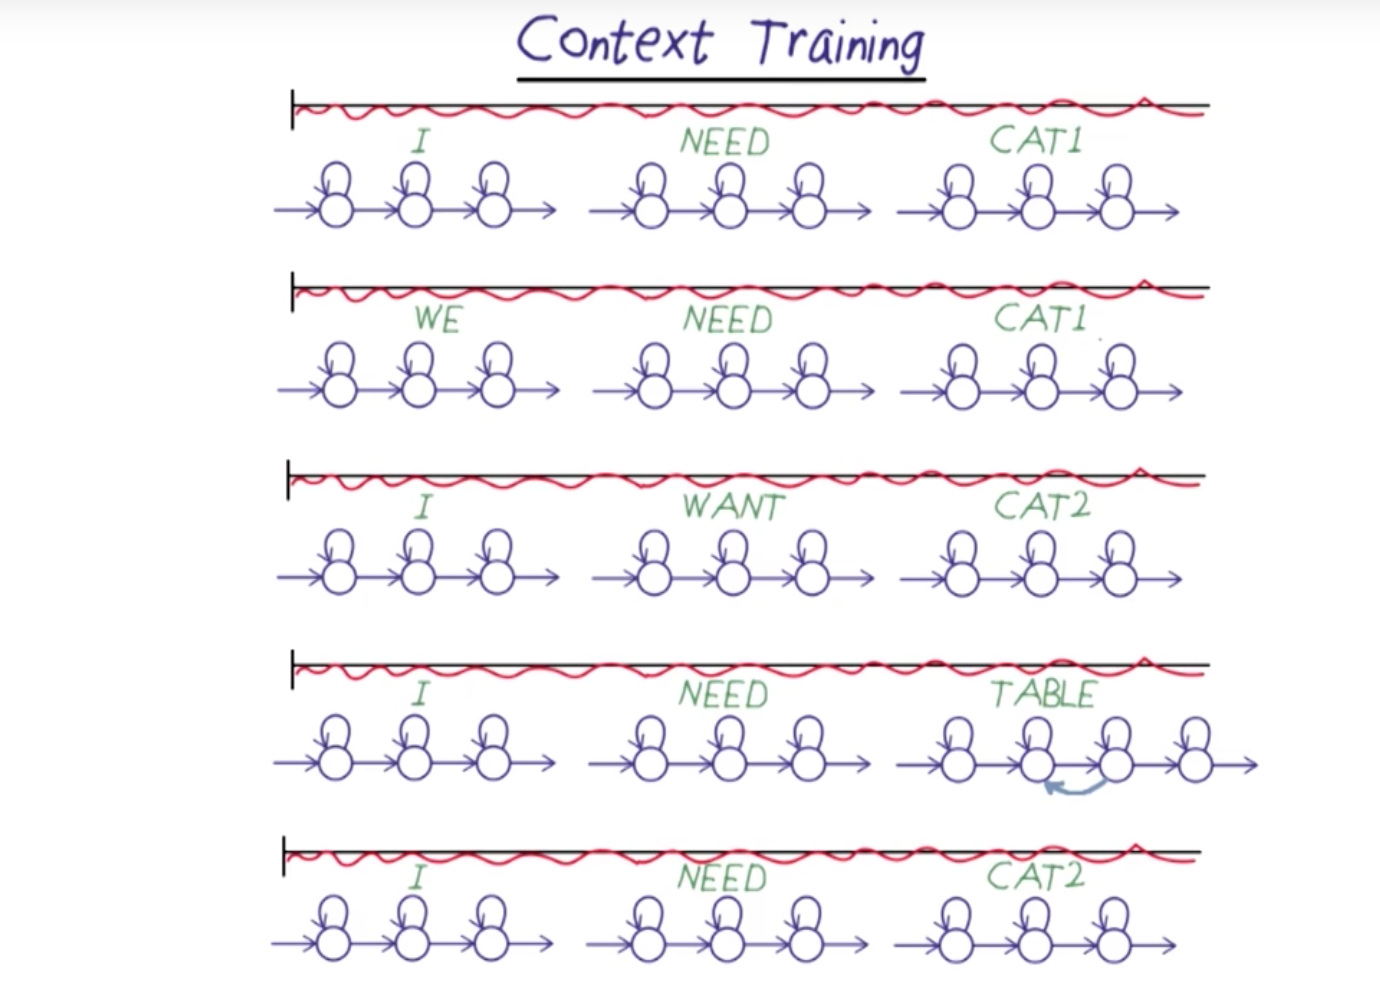 Context Training
I NEED CAT1
WE NEED CAT1
I WANT CAT2
I NEED TABLE
I NEED CAT2